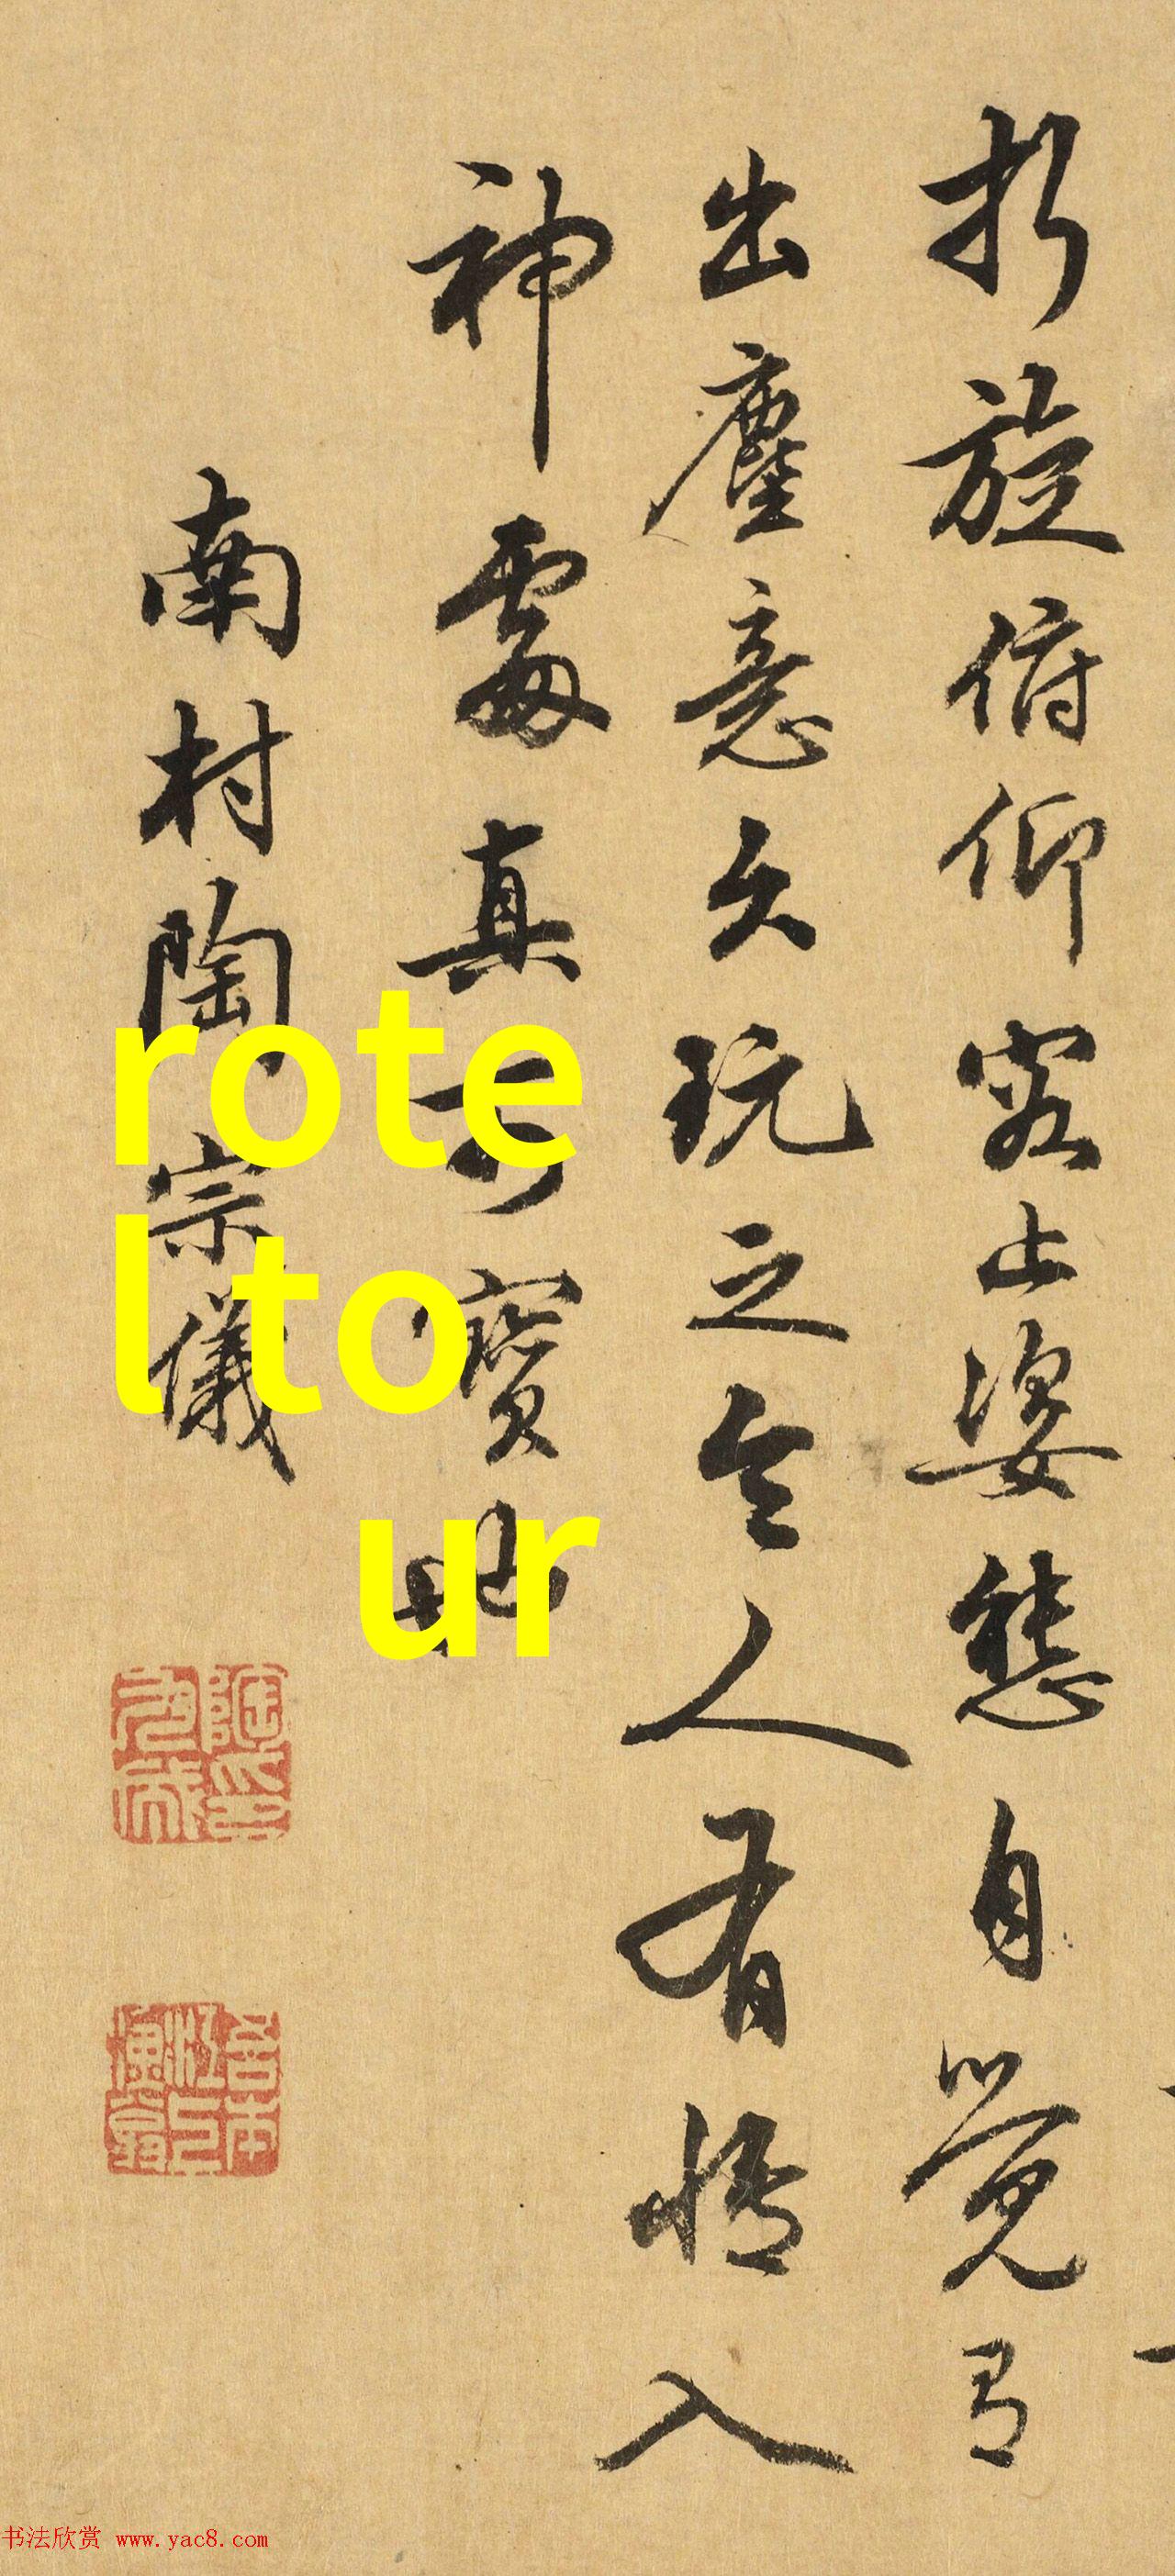 折旋俯仰容止姿態自覺有
出塵意久玩之令人有情入
神處真可寶也
南村陶宗儀
rote
l to
ur
书法欣赏 www.yac8.com